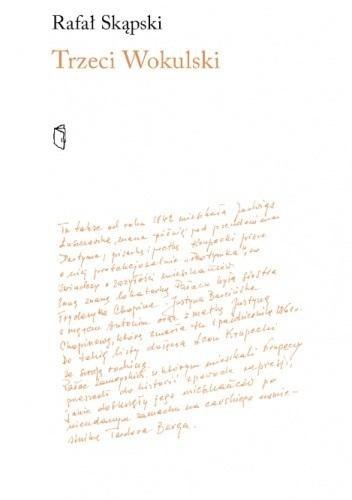 Rafał Skąpski
Trzeci Wokulski
Tu także od roku 1842 mieszkała Jadwiga
Łuszczewska, znana później pod pseudonimem
Deotyma, pisarka i poetka. Krupecki pisze
o niej protekcjonalnie
świadczy o zażyłości mieszkańców.
Inną znaną lokatorką Pałacu była siostra
Fryderyka Chopina - Justyna
z mężem Antonim oraz z matką Justyną
Chopinową, która zmarła tu 1 października 1861 r.
Do takiej listy dołącza Leon Krupecki
ze swoją rodziną.
Pałac Zamoyskich, w którym mieszkali Krupeccy
przeszedł do historii z powodu represji,
jakie dotknęły jego mieszkańców po
nieudanym zamachu na carskiego namie-
stnika Teodora Berga.